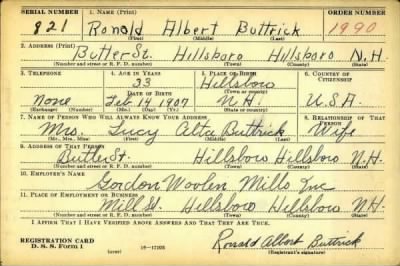 SERIAL NUMBER 1. NAME (Print) ORDER NUMBER
821 Ronald Albert Buttrick 1990
(First) (Middle) (Last)
2. ADDRESS (Print)
Butler St. Hillsboro Hillsboro N.H.
(Number and street or R. F. D. number) (Town) (County) (State)
3. TELEPHONE 4. AGE IN YEARS 5. PLACE OF BIRTH 6. COUNTRY OF CITIZENSHIP
33 Hillsboro
DATE OF BIRTH (Town or county)
None Feb. 14 1907 N.H. U.S.A.
(Exchange) (Number) (Mo.) (Day) (Yr.) (State or country)
7. NAME OF PERSON WHO WILL ALWAYS KNOW YOUR ADDRESS 8. RELATIONSHIP OF THAT PERSON
Mrs. Lucy Alta Buttrick Wife
(Mr., Mrs., Miss) (First) (Middle) (Last)
9. ADDRESS OF THAT PERSON
Butler St. Hillsboro Hillsboro N.H.
(Number and street or R. F. D. number) (Town) (County) (State)
10. EMPLOYER'S NAME
Gordon Woolen Mills Inc
11. PLACE OF EMPLOYMENT OR BUSINESS
Mill St. Hillsboro Hillsboro N.H.
(Number and street or R. F. D. number) (Town) (County) (State)
I AFFIRM THAT I HAVE VERIFIED ABOVE ANSWERS AND THAT THEY ARE TRUE.
REGISTRATION CARD
D. S. S. FORM 1 (over) 16—17105 Ronald Albert Buttrick
(Registrant's signature)